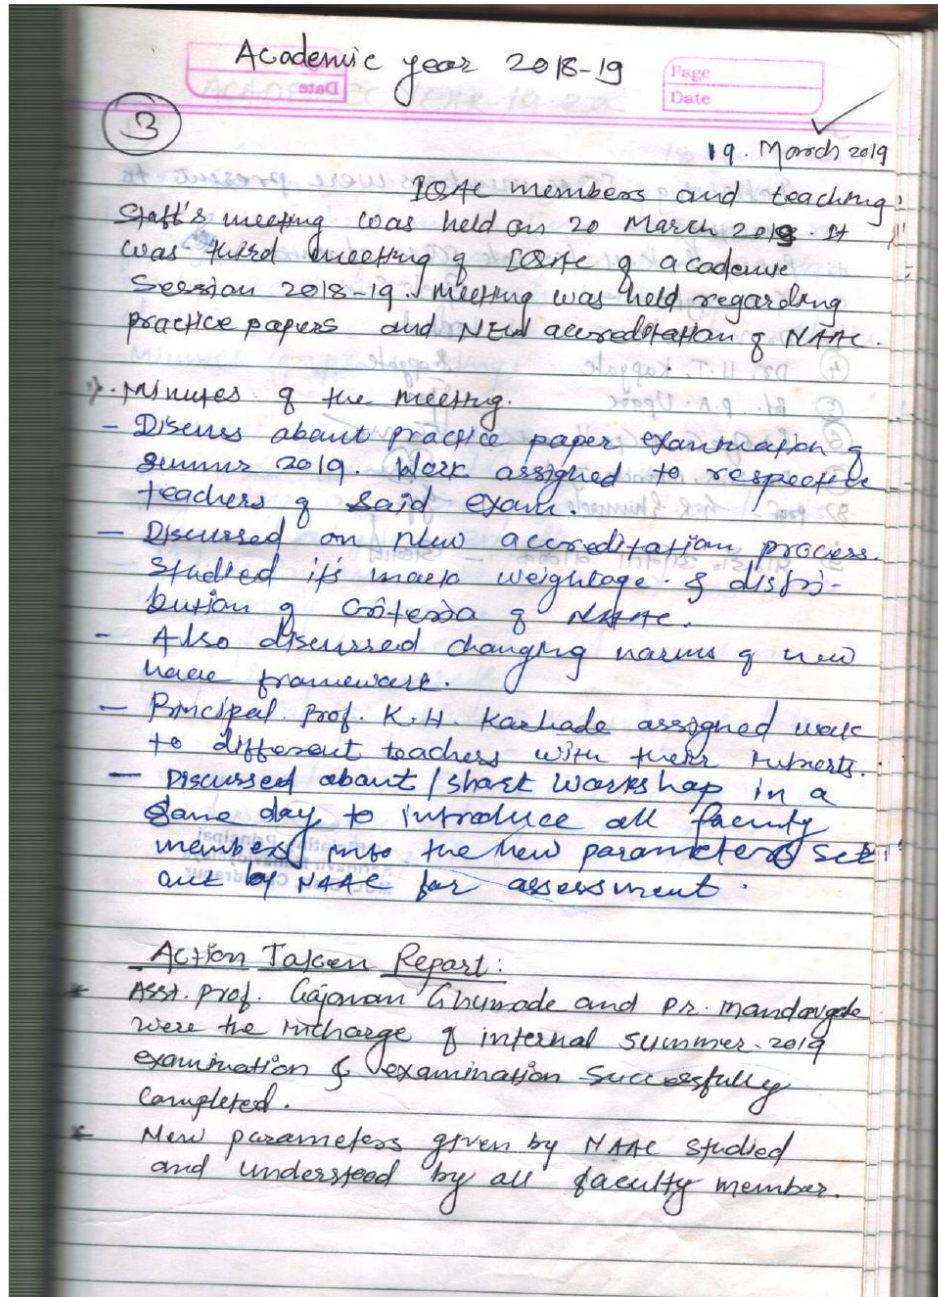 Academic year 2018-19
Page
Date
3
19. March 2019
IQAC members and teaching
Staff's meeting was held on 20 March 2019. It
was third meeting of IQAC of academic
Session 2018-19. meeting was held regarding
practice papers and NEW accreditation of NAAC.
Minutes of the meeting.
- Discuss about practice paper examination of
summr 2019. Work assigned to respective
teachers of said exam.
- Discussed on new accreditation process.
Studied its mark weightage & distri-
bution of criteria of NAAC.
- Also discussed changing norms of new
naac framework.
- Principal Prof. K.H. Karhade assigned work
to different teachers with their
- Discussed about 1 short workshop in a
same day to introduce all faculty
members into the new parameters set
out by NAAC for assessment.
Action Taken Report:
* Asst. prof. Gajanan Ghumade and Dr. Mandavgade
were the incharge of internal summer-2019
examination & examination Successfully
Completed.
* New parameters given by NAAC studied
and understood by all faculty member.